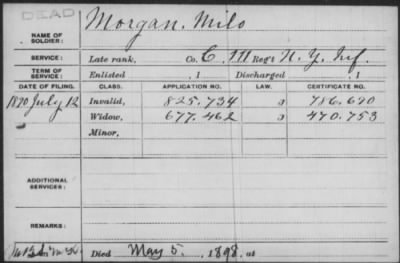 DEAD
NAME OF SOLDIER: Morgan, Milo
SERVICE: Late rank, Co. C, 111 Reg't N. Y. Inf.
TERM OF SERVICE: Enlisted , 1 Discharged , 1
DATE OF FILING. CLASS. APPLICATION NO. LAW. CERTIFICATE NO.
1890 July 12 Invalid, 825.734 786.690
Widow, 677.462 470.753
Minor,
ADDITIONAL SERVICES:
REMARKS:
Died May 5, 1898, at